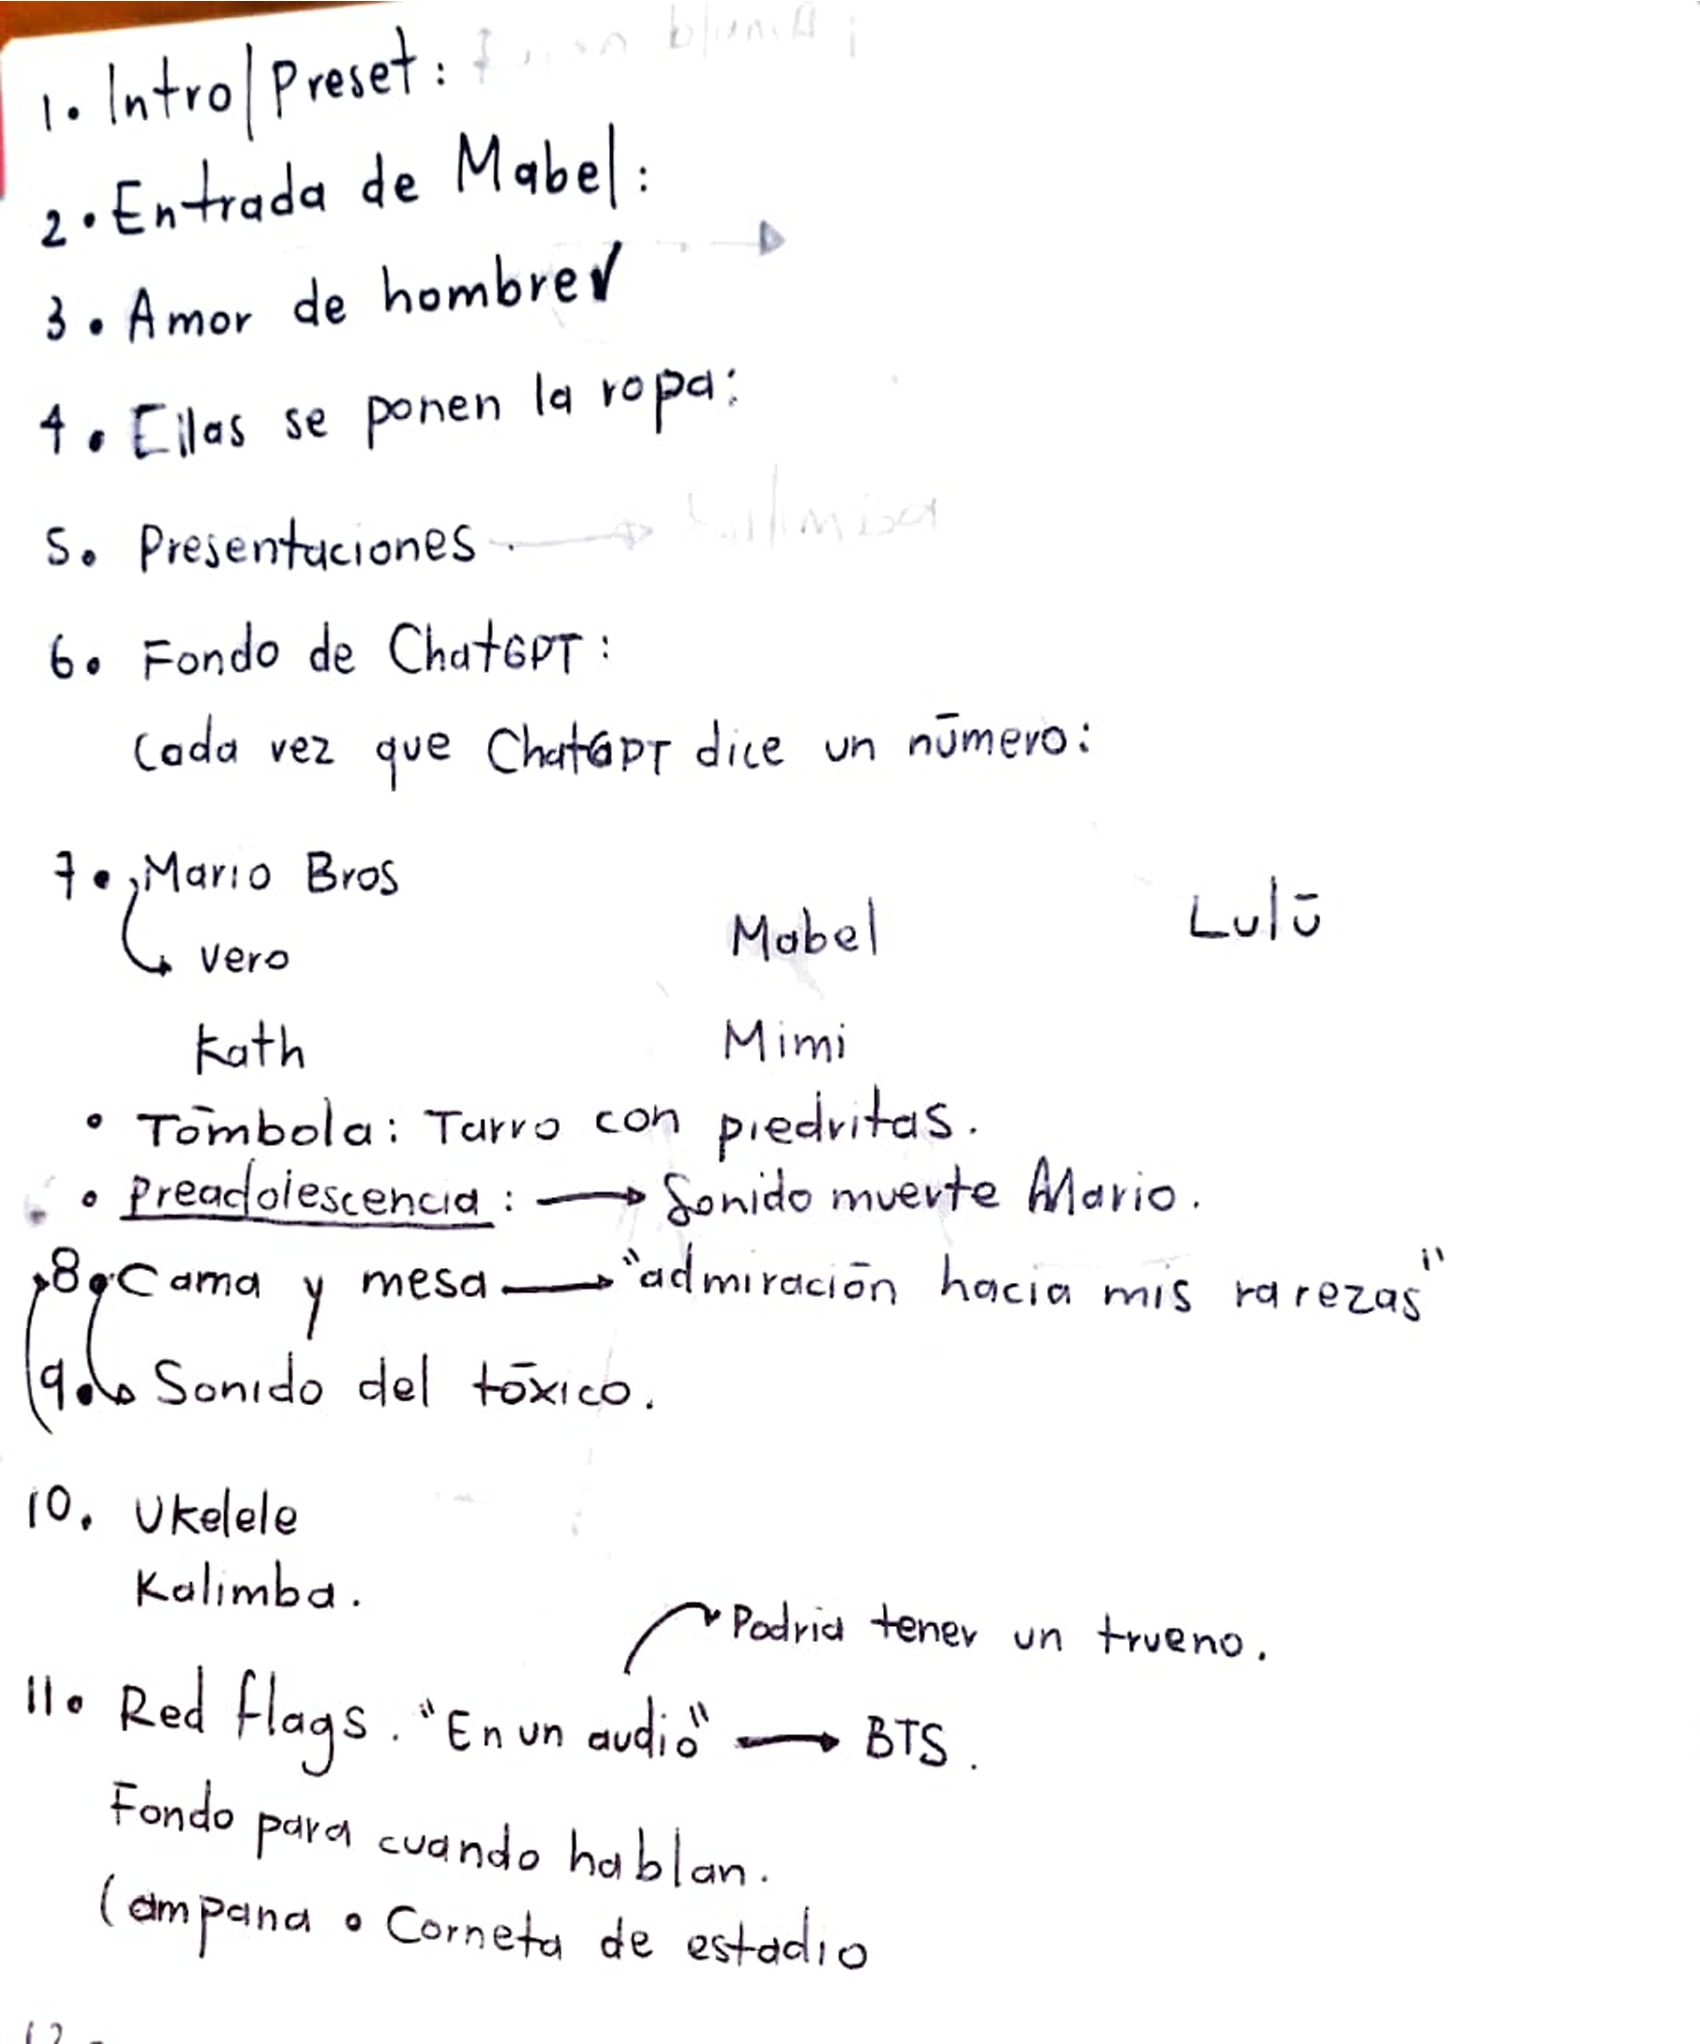 1. Intro/Preset:
2. Entrada de Mabel:
3. Amor de hombre ✓
4. Ellas se ponen la ropa:
5. Presentaciones.
6. Fondo de ChatGPT:
Cada vez que ChatGPT dice un número:
7. Mario Bros
Mabel Lulú
→ vero
Kath Mimi
• Tómbola: Tarro con piedritas.
• Preadolescencia: → Sonido muerte Mario.
8. Cama y mesa → "admiración hacia mis rarezas"
9. Sonido del tóxico.
10. Ukelele
Kalimba.
Podria tener un trueno.
11. Red flags. "En un audio" → BTS.
Fondo para cuando hablan.
Campana o Corneta de estadio